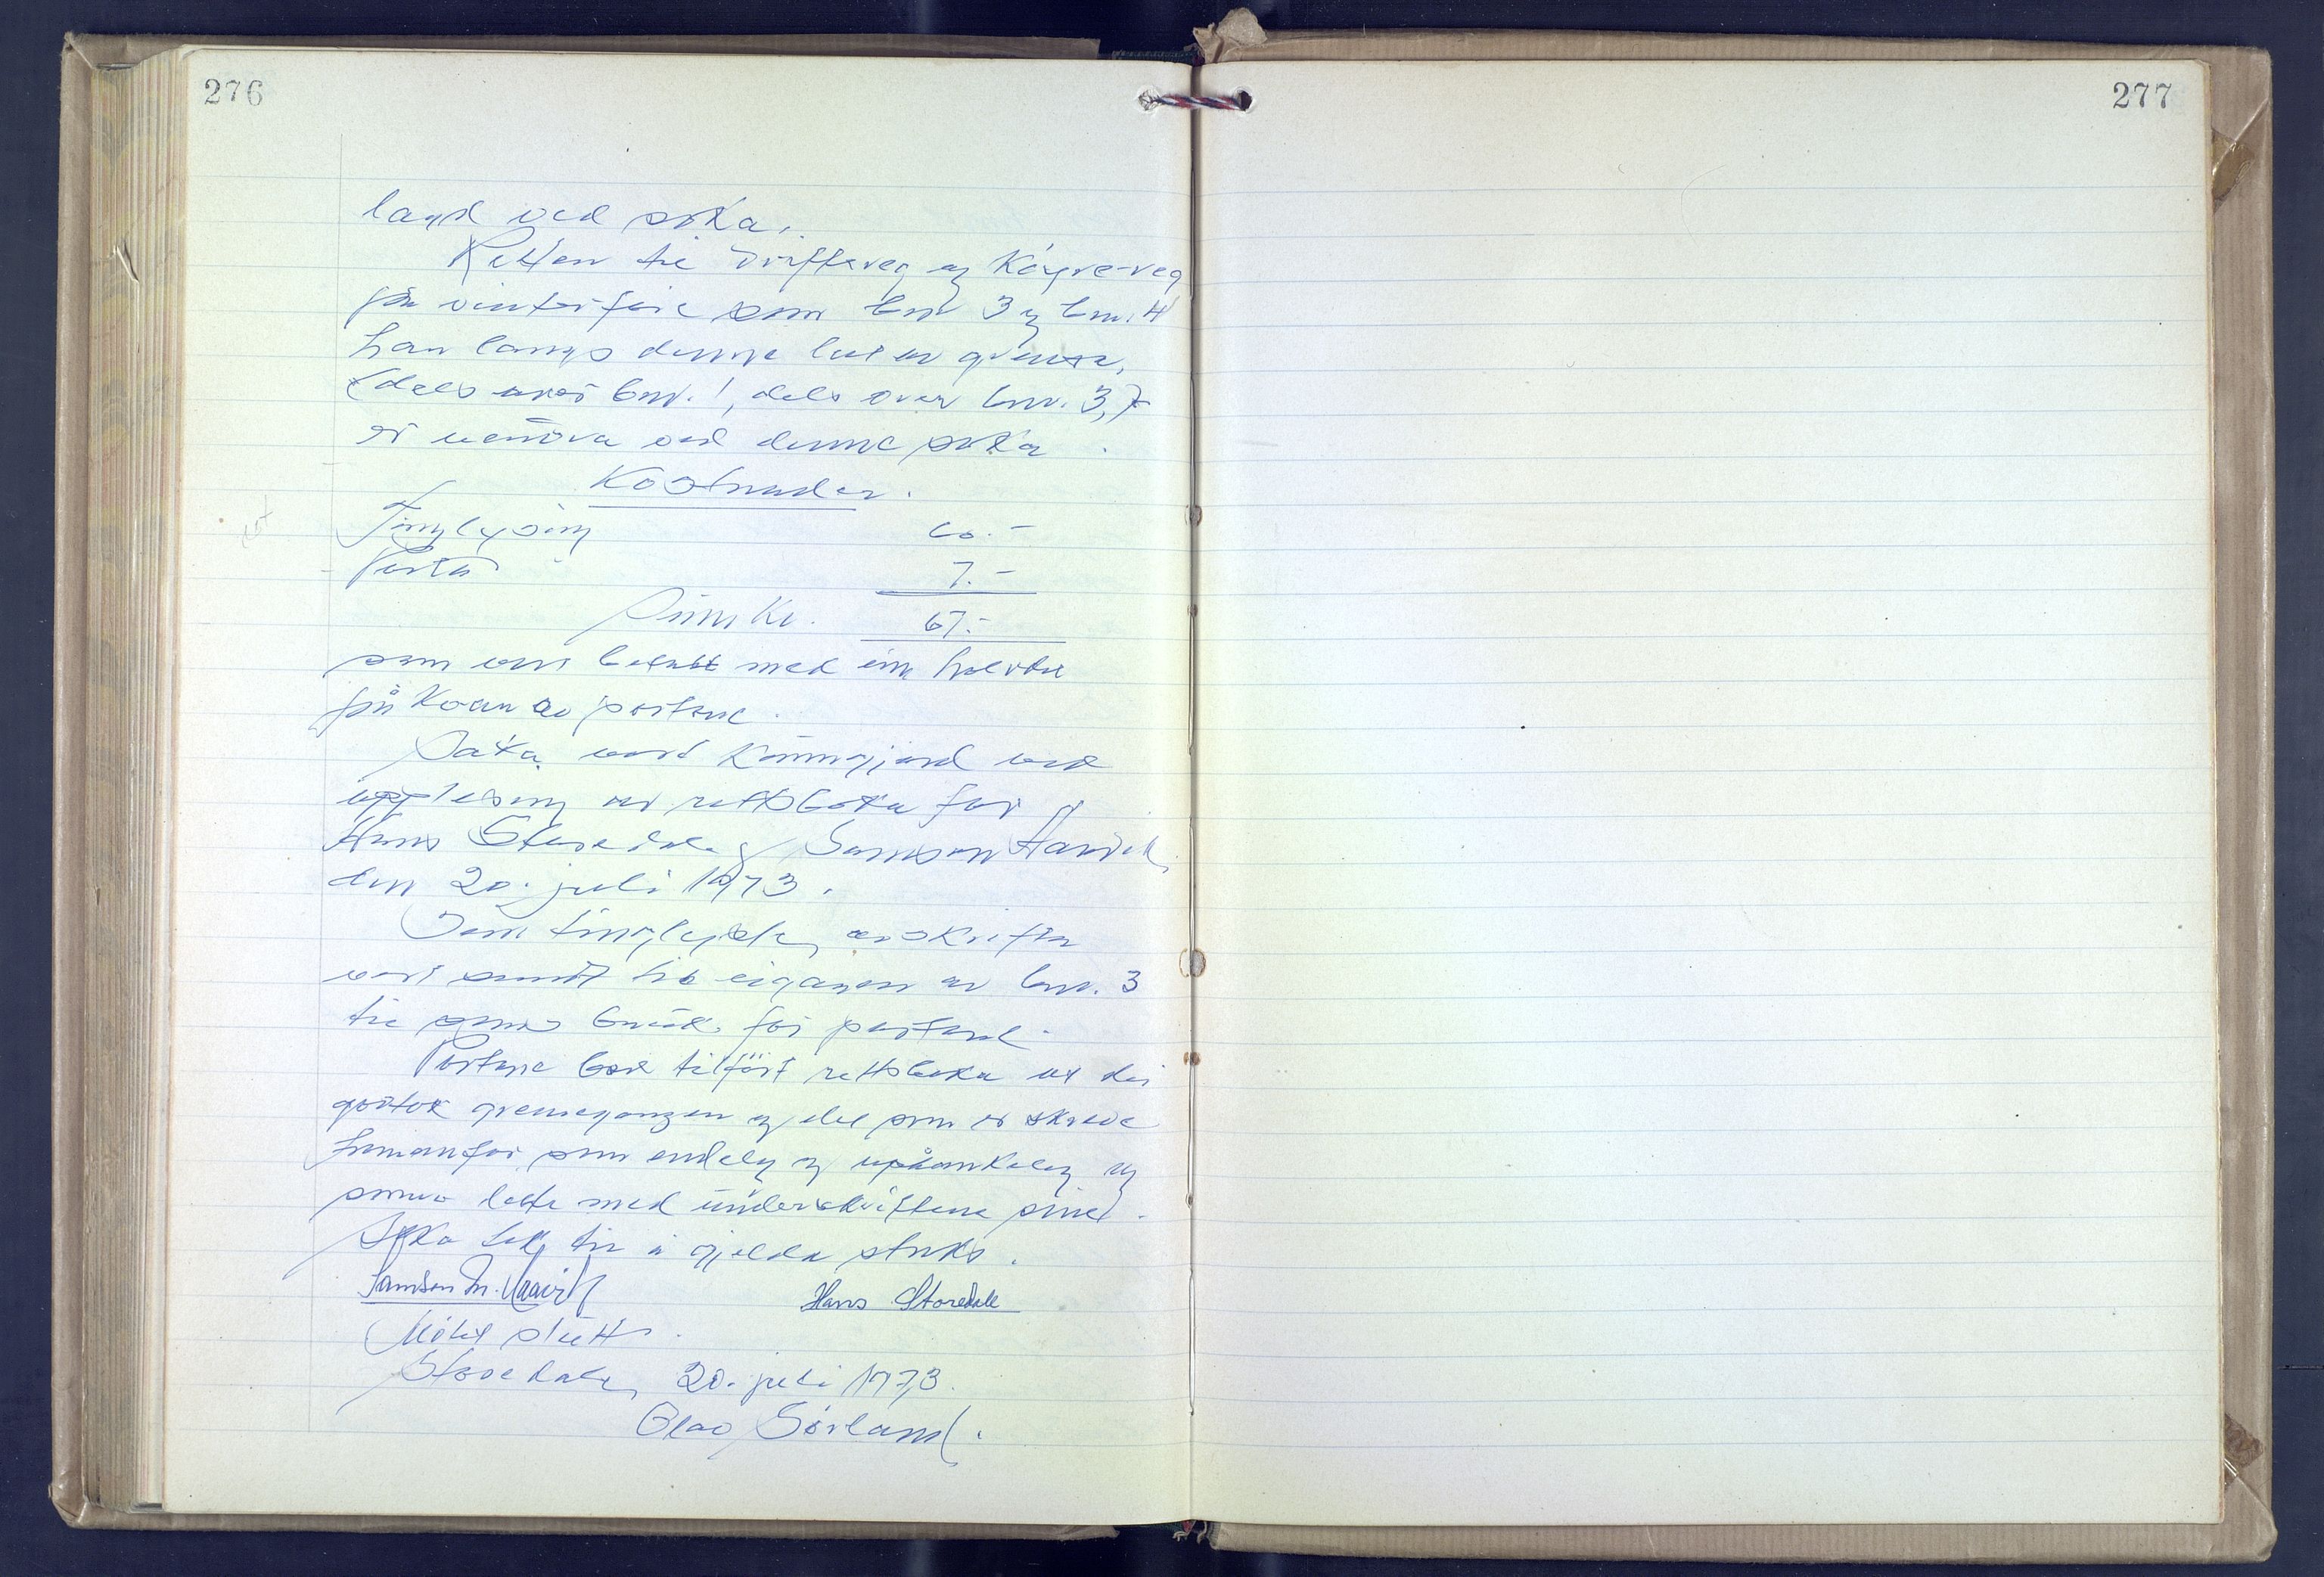 276
277
land ved søka.
Retten til driftsveg og køyre-veg
på vinterføre som bnr 3 og bnr. 4
har langs denne lut av grensa,
(dels over bnr. 1, dels over bnr. 3,7
er urøyva ved denne søka.
Kostnader.
Tinglysing 60.-
Porto 7.-
Sum kr. 67.-
som vert betalt med ein halvdel
på kvar av partane.
Saka vart kunngjord ved
upplesing av rettsboka for
Hans Storedale og Samson Haavik
den 20. juli 1973.
Den tinglyste avskrifta
vart sendt til eigaren av bnr. 3
til sams bruk for partane.
Partane bad tilført rettsboka at dei
godtok grensegangen og det som er skrive
framanfor som endeleg og upåankeleg og
sanna dette med underskriftene sine.
Søka tek til å gjelda straks.
Samson M. Haavik Hans Storedale
Møtet slutt.
Storedale, 20. juli 1973.
Olav Sørland.